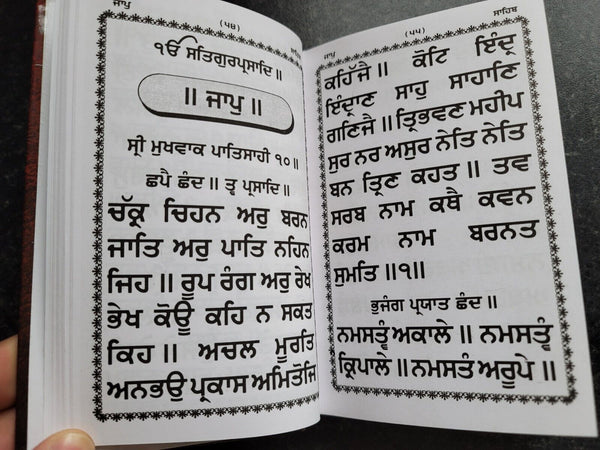 ਜਾਪੁ (੫੪) ਸਾਹਿ
ੴ ਸਤਿਗੁਰਪ੍ਰਸਾਦਿ ॥
॥ ਜਾਪੁ ॥
ਸ੍ਰੀ ਮੁਖਵਾਕ ਪਾਤਿਸਾਹੀ ੧੦ ॥
ਛਪੈ ਛੰਦ ॥ ਤ੍ਵ ਪ੍ਰਸਾਦਿ ॥
ਚੱਕ੍ਰ ਚਿਹਨ ਅਰੁ ਬਰਨ
ਜਾਤਿ ਅਰੁ ਪਾਤਿ ਨਹਿਨ
ਜਿਹ ॥ ਰੂਪ ਰੰਗ ਅਰੁ ਰੇਖ
ਭੇਖ ਕੋਊ ਕਹਿ ਨ ਸਕਤ
ਕਿਹ ॥ ਅਚਲ ਮੂਰਤਿ
ਅਨਭਉ ਪ੍ਰਕਾਸ ਅਮਿਤੋਜਿ
ਜਾਪੁ (੫੫) ਸਾਹਿਬ
ਕਹਿੱਜੈ ॥ ਕੋਟਿ ਇੰਦ੍ਰ
ਇੰਦ੍ਰਾਣ ਸਾਹੁ ਸਾਹਾਣਿ
ਗਣਿਜੈ ॥ ਤ੍ਰਿਭਵਣ ਮਹੀਪ
ਸੁਰ ਨਰ ਅਸੁਰ ਨੇਤਿ ਨੇਤਿ
ਬਨ ਤ੍ਰਿਣ ਕਹਤ ॥ ਤਵ
ਸਰਬ ਨਾਮ ਕਥੈ ਕਵਨ
ਕਰਮ ਨਾਮ ਬਰਨਤ
ਸੁਮਤਿ ॥੧॥
ਭੁਜੰਗ ਪ੍ਰਯਾਤ ਛੰਦ ॥
ਨਮਸਤ੍ਵੰ ਅਕਾਲੇ ॥ ਨਮਸਤ੍ਵੰ
ਕ੍ਰਿਪਾਲੇ ॥ ਨਮਸਤੰ ਅਰੂਪੇ ॥